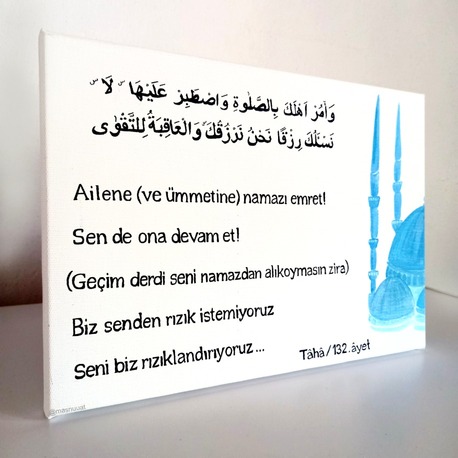 وَأْمُرْ اَهْلَكَ بِالصَّلٰوةِ وَاصْطَبِرْ عَلَيْهَاۜ لَاۜ
نَسْـَٔلُكَ رِزْقًاۜ نَحْنُ نَرْزُقُكَۜ وَالْعَاقِبَةُ لِلتَّقْوٰى
Ailene (ve ümmetine) namazı emret!
Sen de ona devam et!
(Geçim derdi seni namazdan alıkoymasın zira)
Biz senden rızık istemiyoruz
Seni biz rızıklandırıyoruz...
Tâhâ/132.âyet